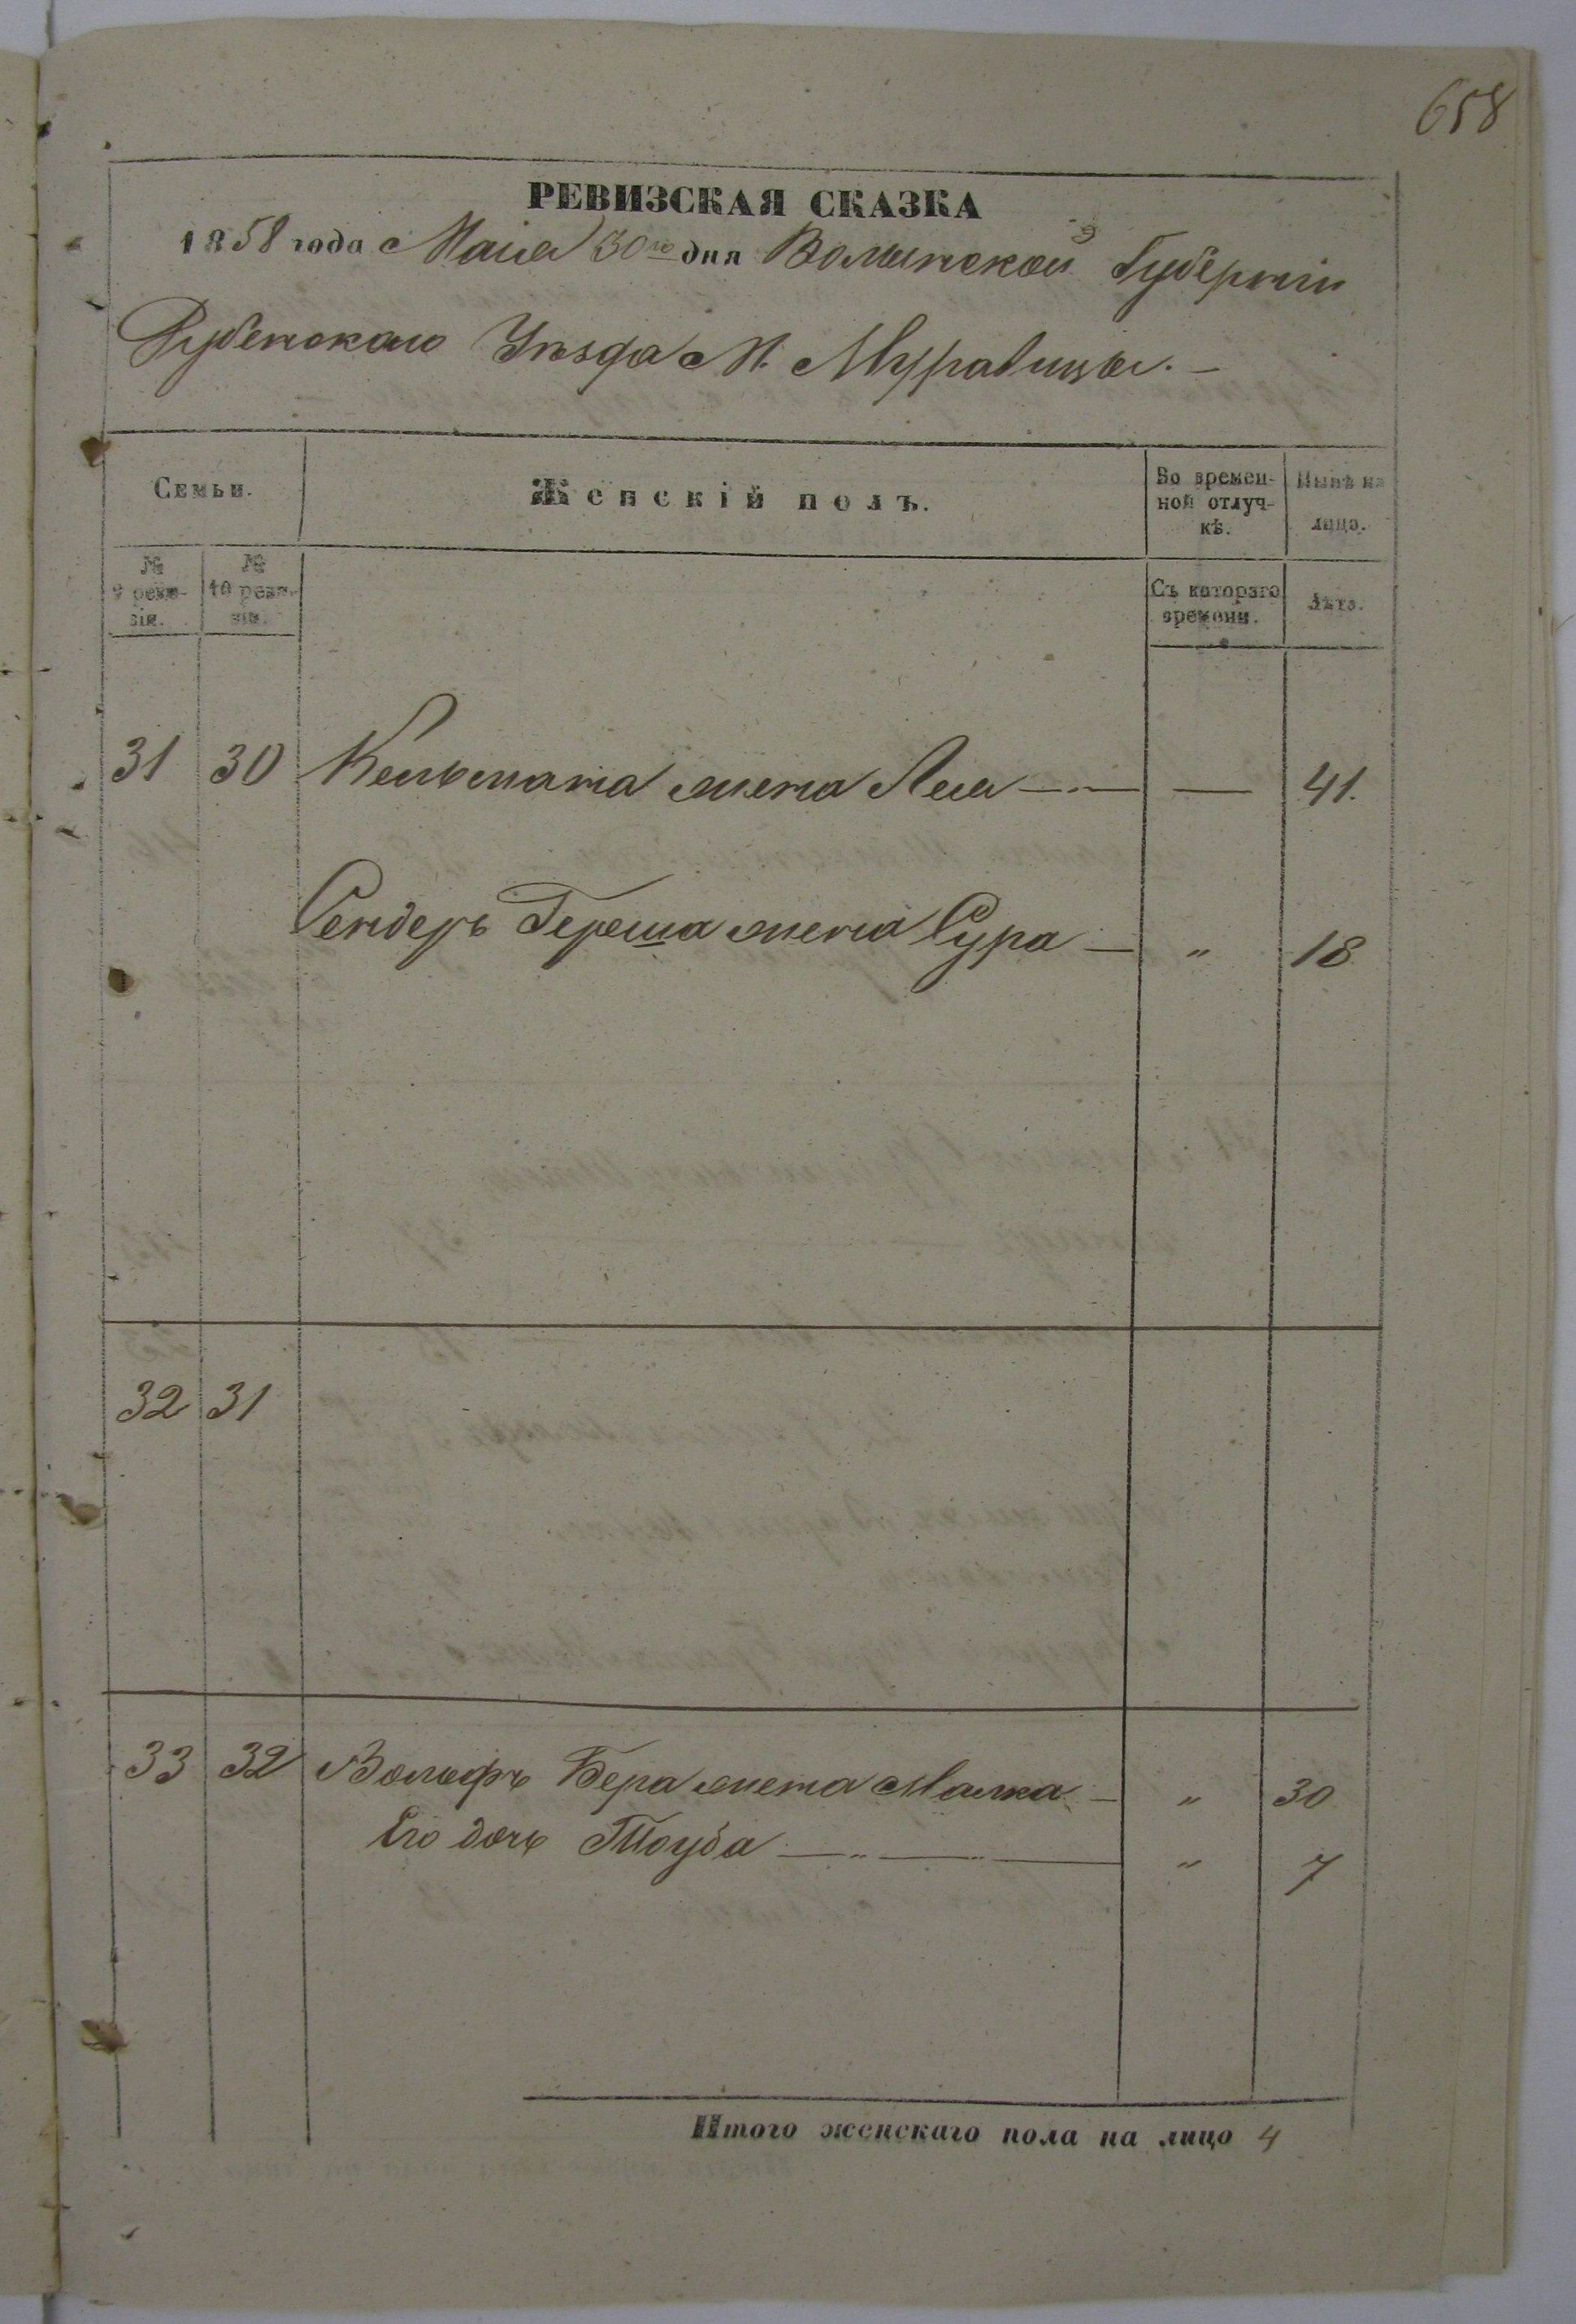 658
РЕВИЗСКАЯ СКАЗКА
1858 года Маія 30го дня Волынской Губерніи
Дубенскаго Уѣзда М. Муравицы. —
Семьи.
Женскій полъ.
Во времен-
ной отлуч-
кѣ.
Нынѣ на
лицо.
№
9 реви-
зіи.
№
10 реви-
зіи.
Съ котораго
времени.
Лѣта.
31 30 Кельмана жена Лея — — 41.
Сендеръ Герша жена Сура — " 18
32 31
33 32 Вольфъ Бера жена Малка — " 30
Его дочь Тоуба — " — " — " 7
Итого женскаго пола на лицо 4